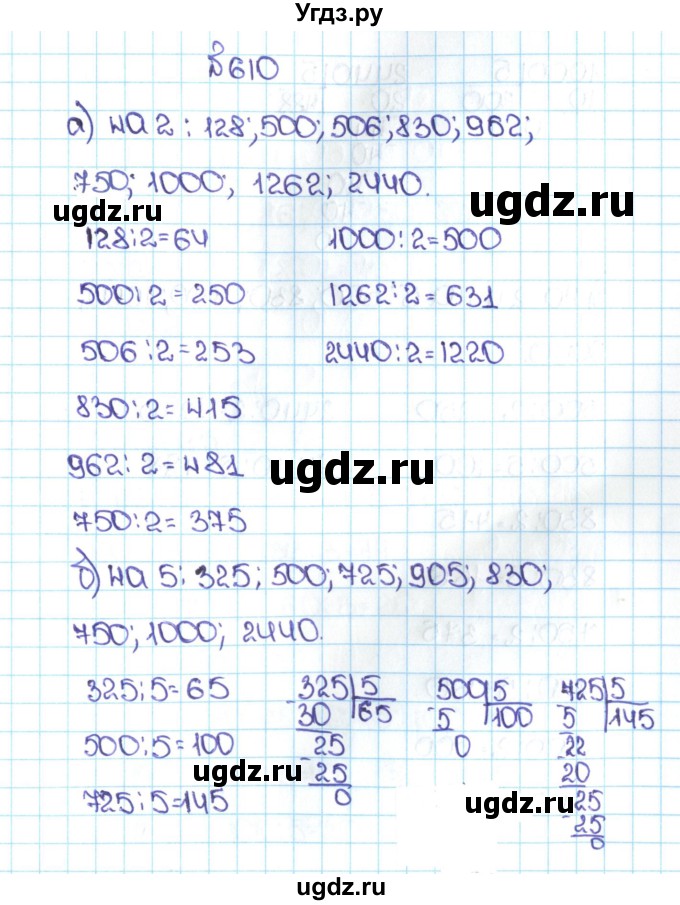 Угдз.ру
№610
а) на 2 : 128; 500; 506; 830; 962;
750; 1000; 1262; 2440.
ugdz.ru
ugdz.ru
128:2=64 1000:2=500
500:2=250 1262:2=631
506:2=253 2440:2=1220
830:2=415
962:2=481
ugdz.ru
750:2=375
б) на 5: 325; 500; 725; 905; 830;
750; 1000; 2440.
325:5=65
500:5=100
725:5=145
325|5
30 65
25
25
0
500|5
5 100
0
725|5
5 145
22
20
25
25
0
ugdz.ru
ugdz.ru
ugdz.ru